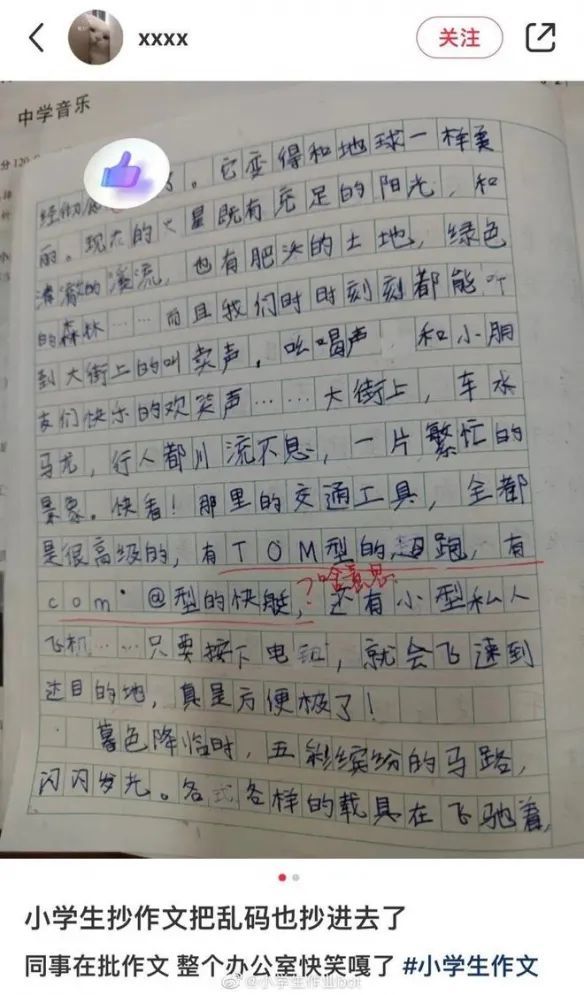 xxxx
关注
中学音乐
分120
了。它变得和地球一样美
丽。现在的火星既有充足的阳光,和
清澈的溪流,也有肥沃的土地,绿色
的森林……而且我们时时刻刻都能听
到大街上的叫卖声,吆喝声 和小朋
友们快乐的欢笑声……大街上,车水
马龙,行人都川流不息,一片繁忙的
景象。快看!那里的交通工具,全都
是很高级的,有TOM型的超跑,有
?啥意思
com·@型的快艇,还有小型私人
飞机……只要按下电钮,就会飞速到
达目的地,真是方便极了!
暮色降临时,五彩缤纷的马路,
闪闪发光。各式各样的载具在飞驰着,
小学生抄作文把乱码也抄进去了
同事在批作文 整个办公室快笑嘎了 #小学生作文
@小学生作业bot